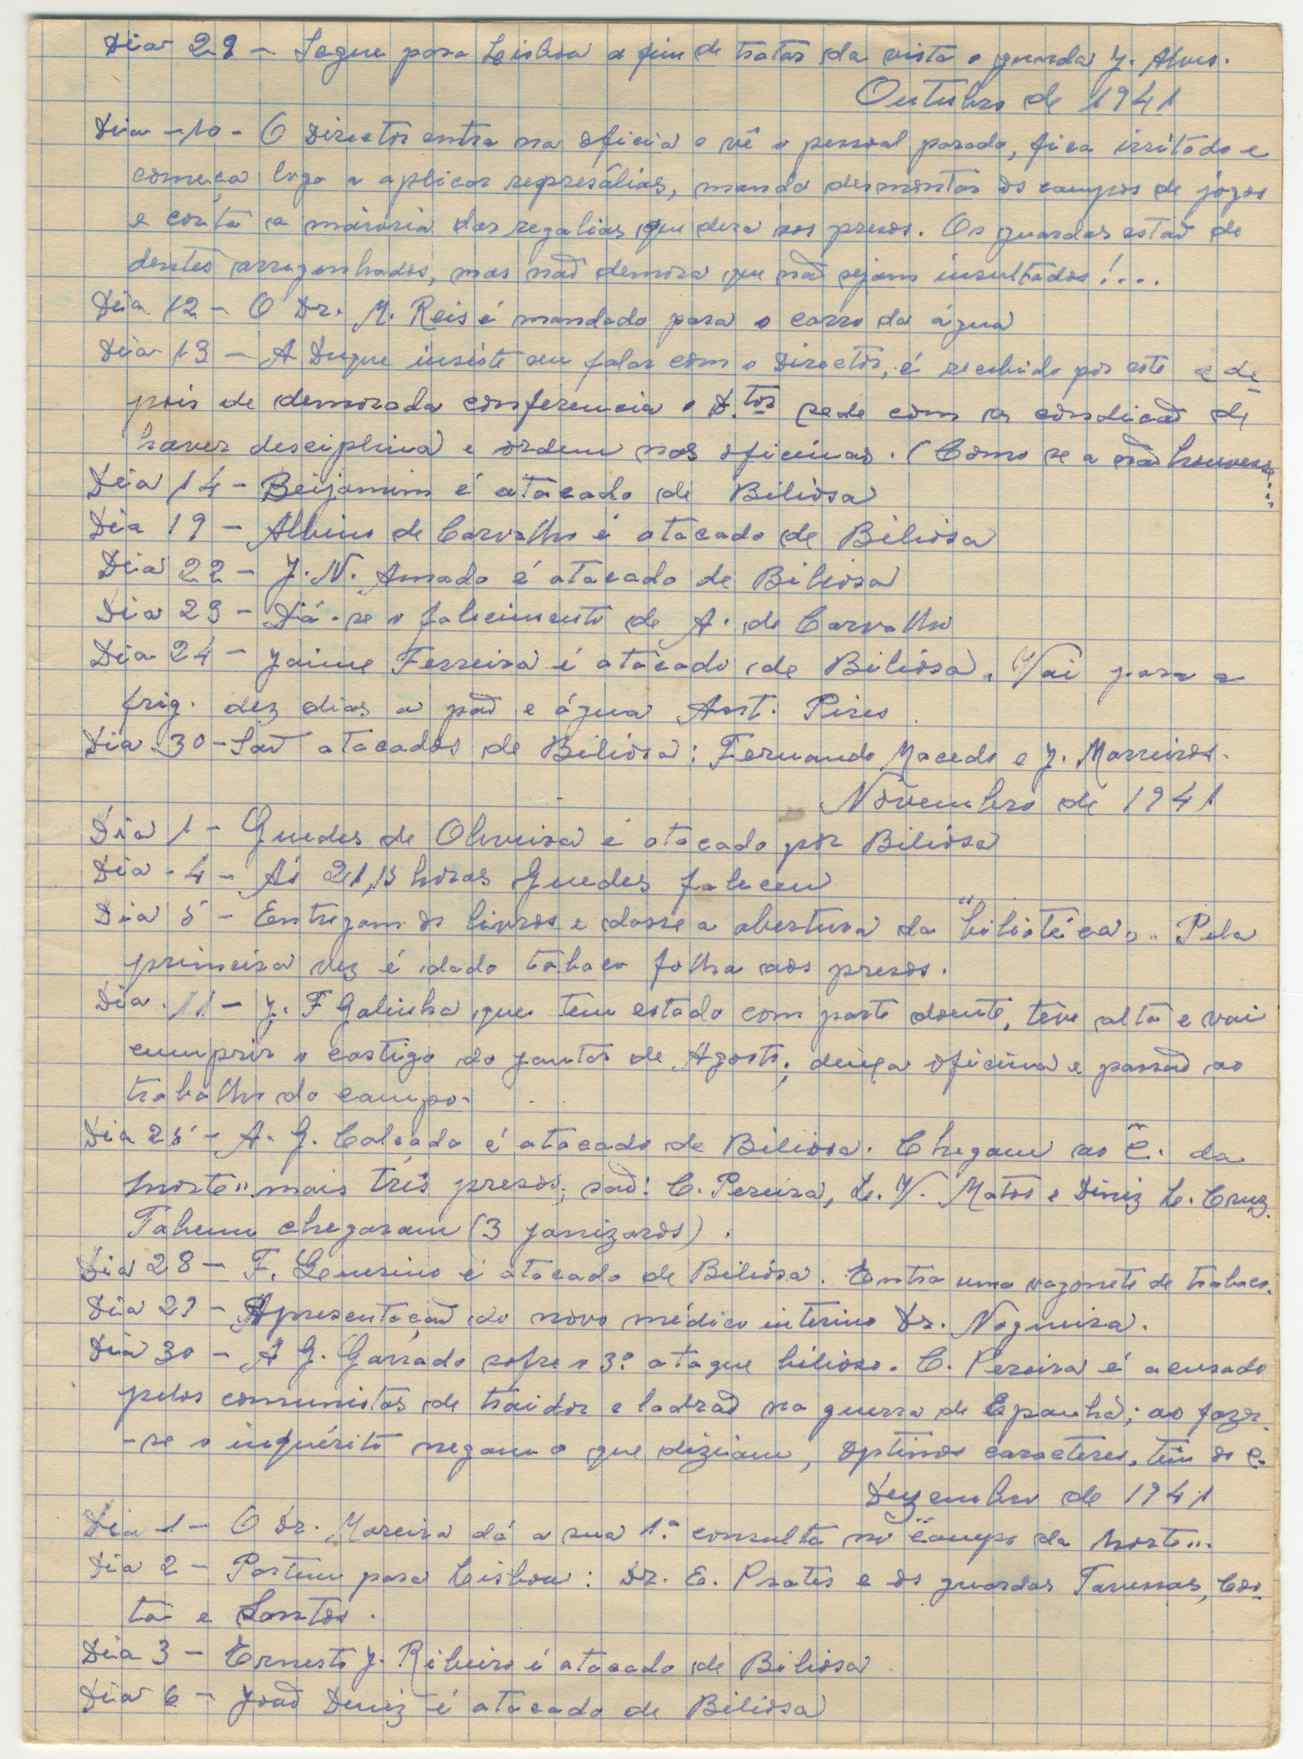 Dia 29 - Segue para Lisboa a fim de tratar da vista o guarda J. Alves.
Outubro de 1941
Dia - 10 - O Director entra na oficia e vê o pessoal parado, fica irritado e
começa logo a aplicar represálias, manda desmontar os campos de jogos
e corta a maioria das regalias que dera aos presos. Os guardas estaõ de
dentes arreganhados, mas naõ demora que naõ sejam insultados!...
Dia 12 - O Dr. M. Reis é mandado para o carro da água
Dia 13 - A Duque insiste em falar com o Director, é recebido por este e de-
pois de demorada conferencia o D.tor cede com a condicaõ de
haver desciplina e ordem nas oficinas. (Como se a naõ houvesse...
Dia 14 - Beijamim é atacado de Biliósa
Dia 19 - Albino de Carvalho é atacado de Biliósa
Dia 22 - J. N. Amado é atacado de Biliosa
Dia 23 - Dá-se o falecimento de A. de Carvalho
Dia 24 - Jaime Ferreira é atacado de Biliósa. Vai para a
frig. dez dias a paõ e água Ant. Pires
Dia 30 - Saõ atacados de Biliósa: Fernando Macedo e J. Marreiros.
Novembro de 1941
Dia 1 - Guedes de Oliveira é atacado por Biliósa
Dia - 4 - Ás 21,15 horas Guedes faleceu
Dia 5 - Entregam os livros e dasse a abertura da "bibiotéca". Pela
primeira vez é dado tabaco folha aos presos.
Dia 11 - J. F Galinha que tem estado com parte doente, teve alta e vai
cumprir o castigo do jantar de Agosto; deixa oficina e passaõ ao
trabalho do campo.
Dia 25 - A. G. Calçada é atacado de Biliósa. Chegam ao "C. da
Morte" mais três presos; saõ: C. Pereira, L. V. Matos e Diniz L. Cruz.
Tabem chegaram (3 janizaros).
Dia 28 - F. Severino é atacado de Biliósa. Entra uma vagonete de trabaco.
Dia 29 - Apresentaçaõ do novo médico interino Dr. Nogueira.
Dia 30 - A G. Garrado sofre o 3º ataque bilioso. C. Pereira é acusado
pelos comunistas de traidor e ladraõ na guerra de Epanha; ao fazer-
-se o inquérito negam o que diziam, óptimos caracteres, têm os c.
Dezembro de 1941
Dia - 1 - O Dr. Moreira dá a sua 1.ª consulta no "campo da Morte".
Dia 2 - Partem para Lisboa: Dr. E. Prates e os guardas Tavessas, Cos-
ta e Santos.
Dia 3 - Ernesto J. Ribeiro é atacado de Biliosa
Dia 6 - Joaõ Deniz é atacado de Biliósa